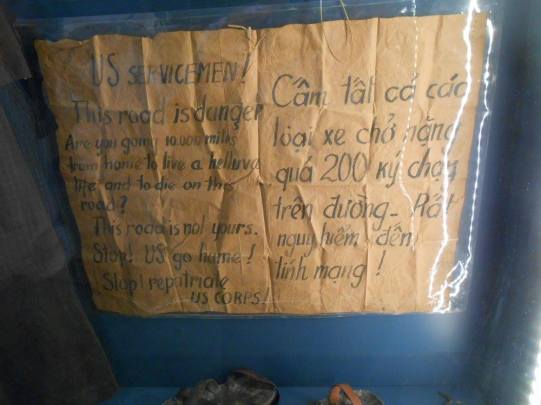 US SERVICEMEN!
This road is danger
Are you going 10.000 miles
from home to live a helluva
life and to die on this
road?
This road is not yours.
Stop! US go home!
Stop! repatriate
US CORPS.
Cấm tất cả các
loại xe chở nặng
quá 200 ký chạy
trên đường - Rất
nguy hiểm đến
tính mạng!